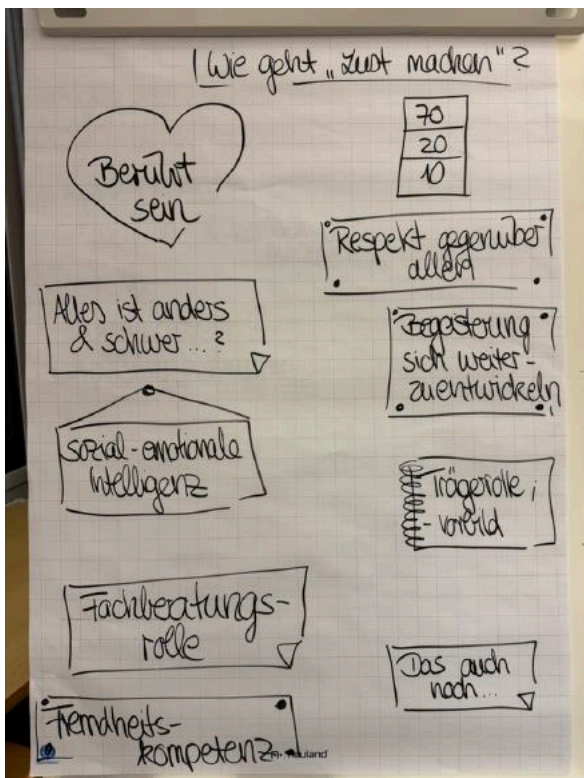 Wie geht "Lust machen"?
Berührt
sein
70
20
10
Respekt gegenüber
allem
Alles ist anders
& schwer...?
Begeisterung
sich weiter-
zuentwickeln
sozial-emotionale
Intelligenz
Trägerrolle;
-vorbild
Fachberatungs-
rolle
Das auch
noch...
Fremdheits-
kompetenz